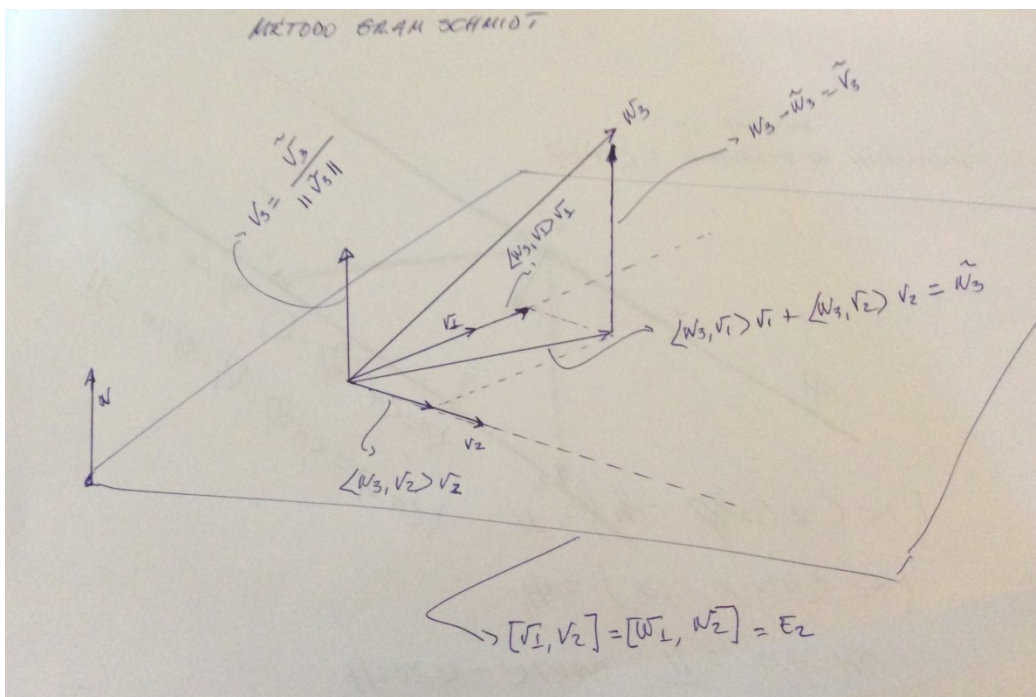 MÉTODO GRAM SCHMIDT
w3
w3 - w̃3 = ṽ3
v3 = ṽ3 / ||ṽ3||
⟨w3, v1⟩ v1
v1
⟨w3, v1⟩ v1 + ⟨w3, v2⟩ v2 = w̃3
N
v2
⟨w3, v2⟩ v2
[v1, v2] = [w1, w2] = E2